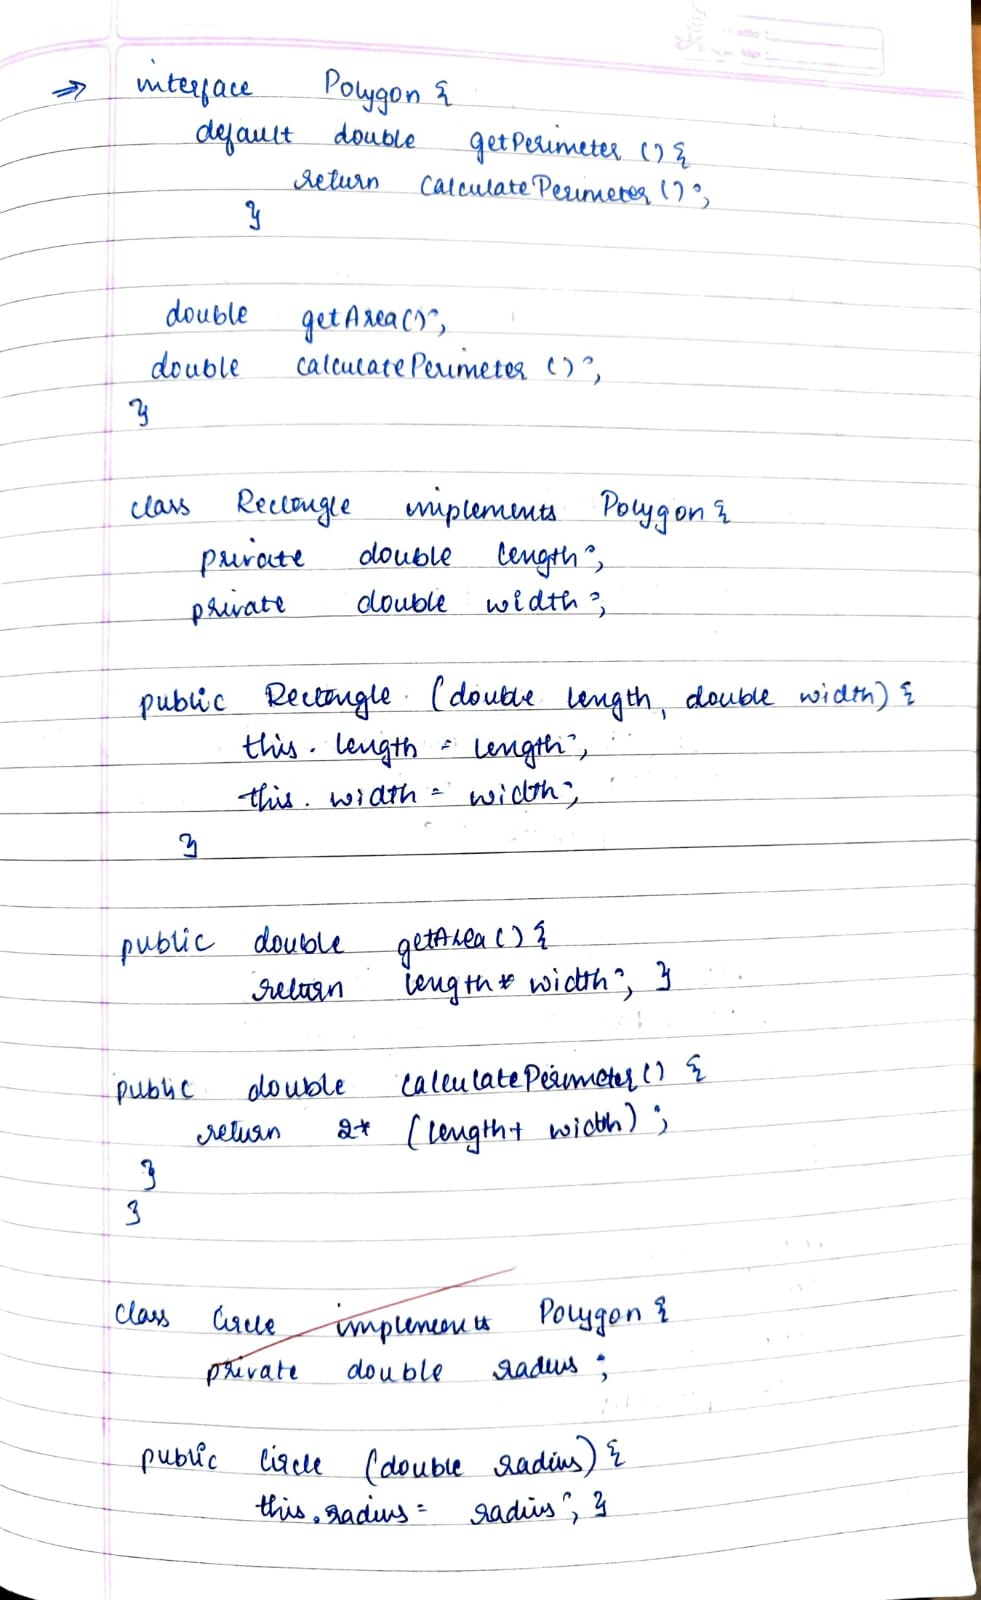 ⇒ interface Polygon {
default double getPerimeter () {
return calculatePerimeter ();
}
double getArea();
double calculatePerimeter ();
}
class Rectangle implements Polygon {
private double length;
private double width;
public Rectangle (double length, double width) {
this. length = length;
this. width = width;
}
public double getArea() {
return length * width; }
public double calculatePerimeter() {
return 2* (length+ width) ;
}
}
class Circle implements Polygon {
private double radius ;
public Circle (double radius) {
this.radius = radius; }